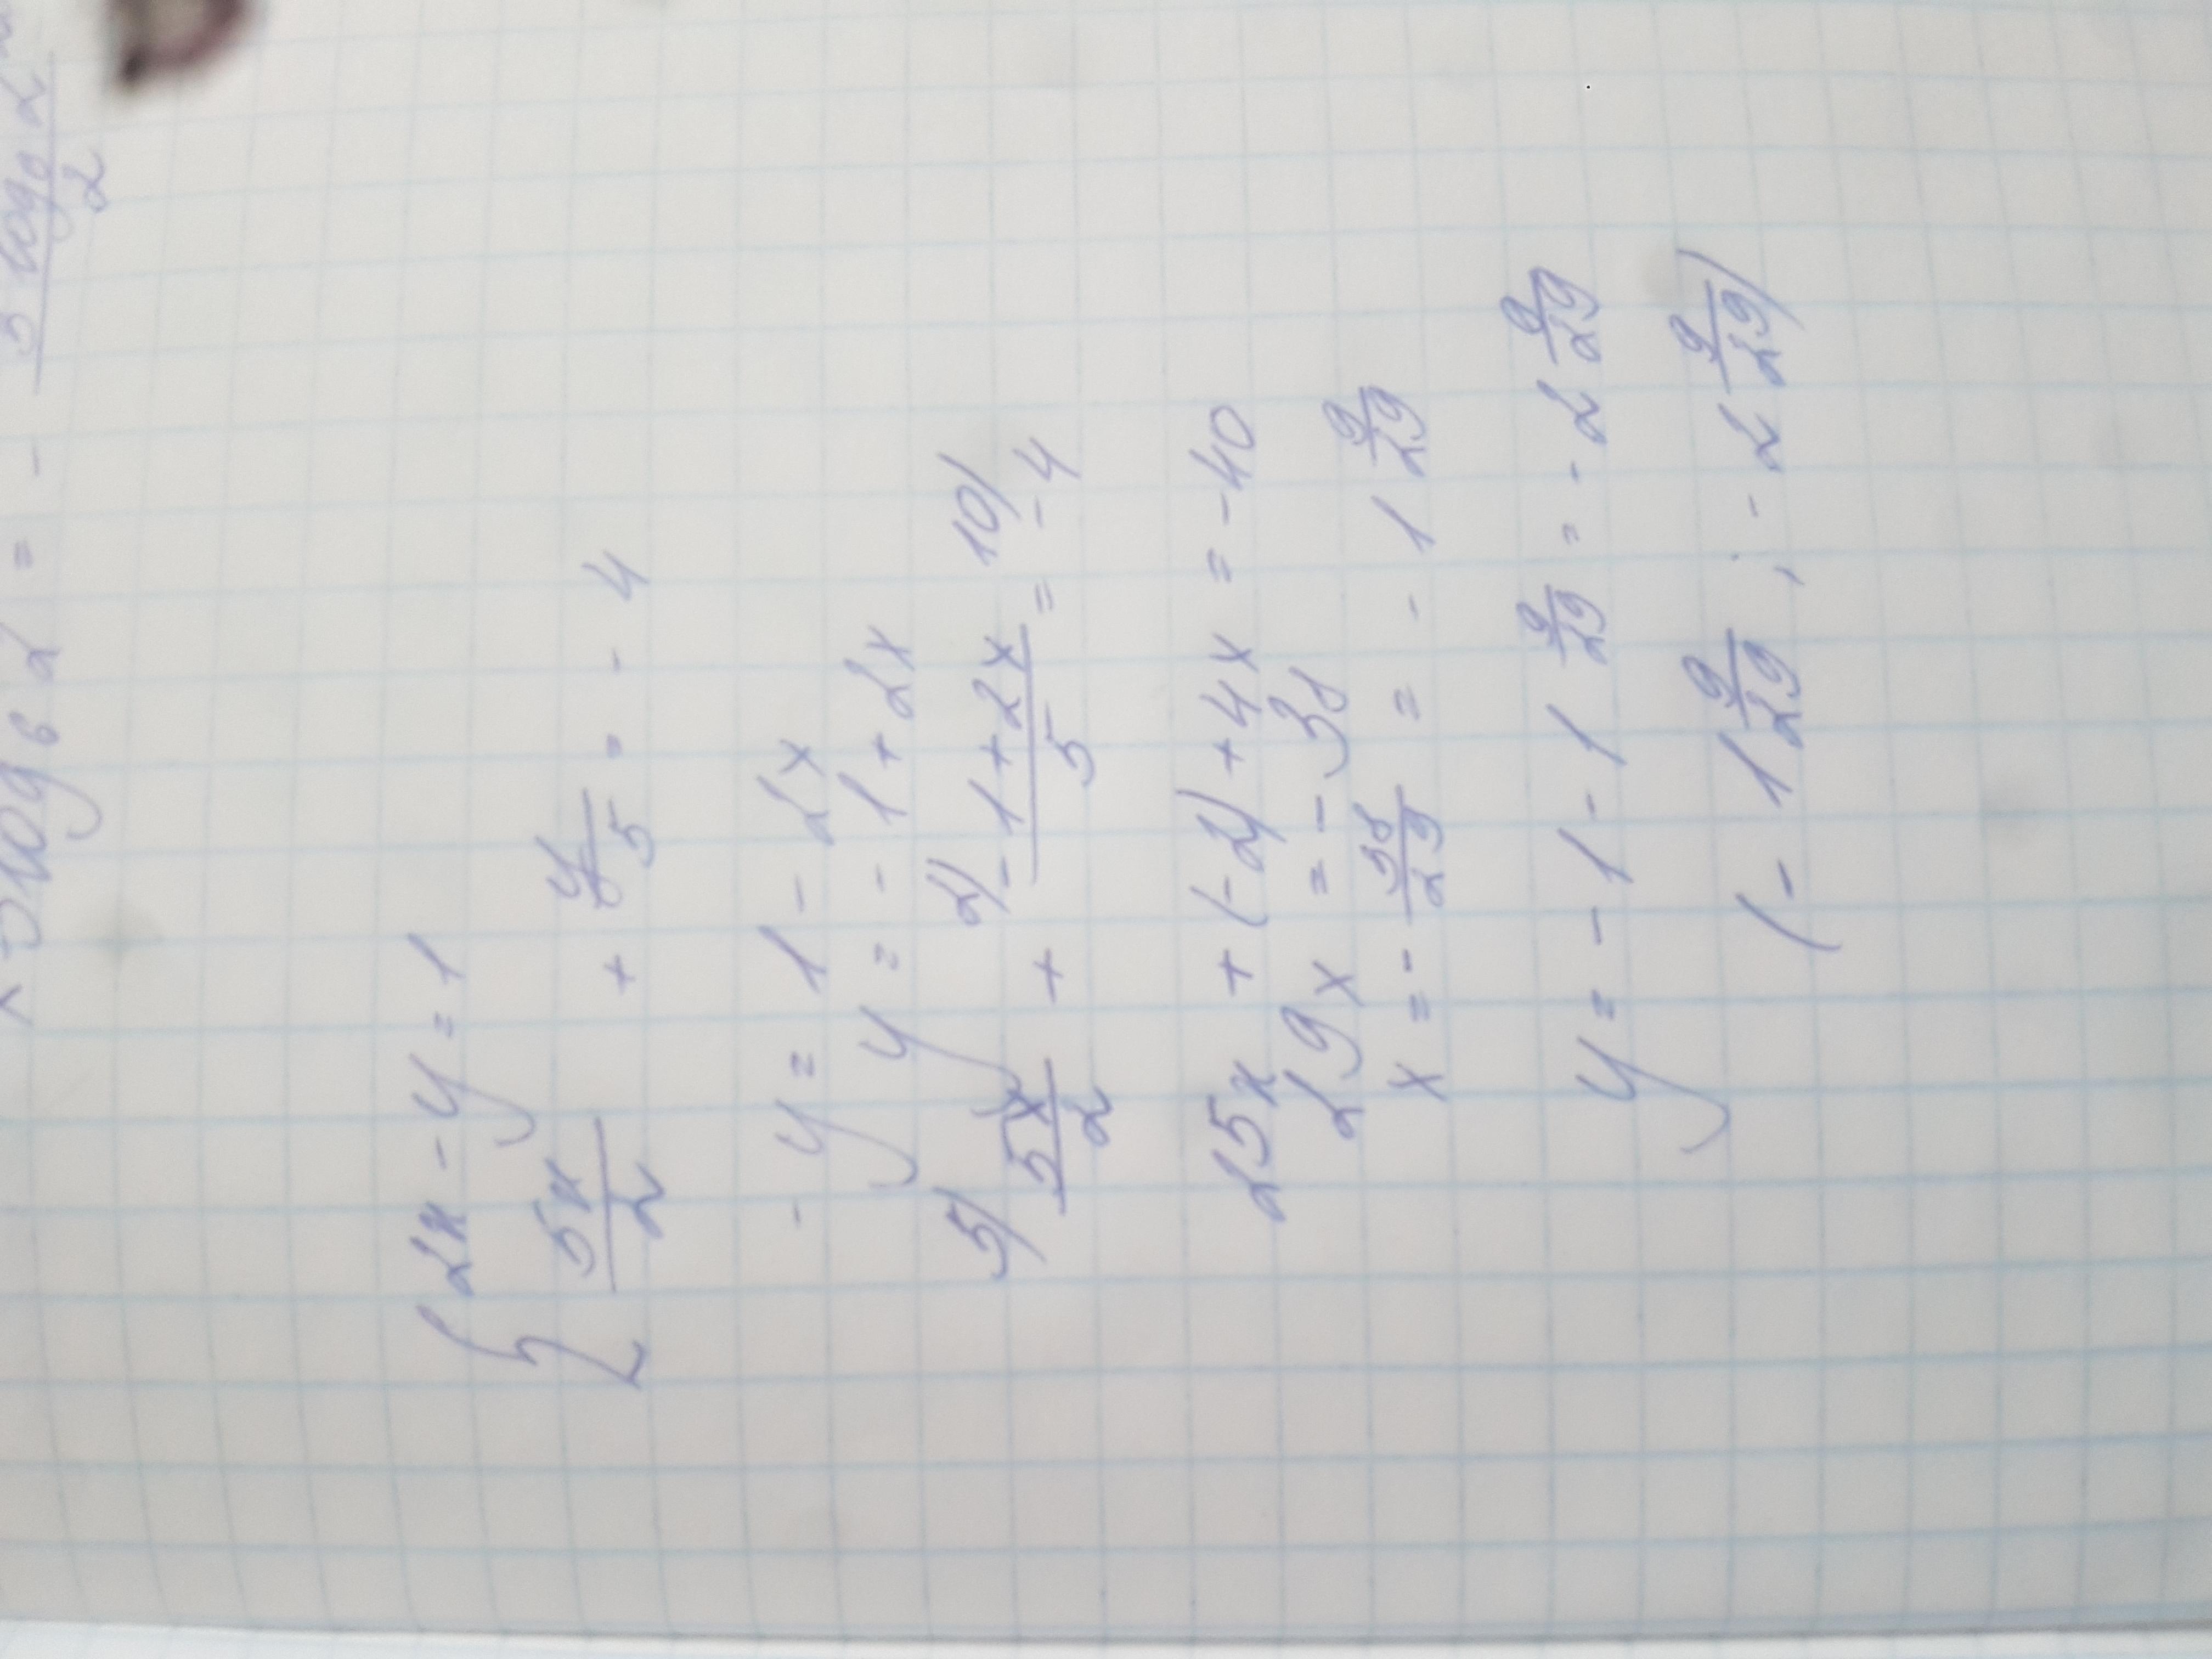 3 log₈ 2
2
log₆ 2 = -
2x - y = 1
5x/2 + y/5 = - 4
- y = 1 - 2x
y = - 1 + 2x
5) 5x/2 + 2) -1+2x/5 = 10) -4
25x + (-2) + 4x = -40
29x = - 38
x = - 38/29 = - 1 9/29
y = - 1 - 1 9/29 = - 2 9/29
(- 1 9/29 ; - 2 9/29)